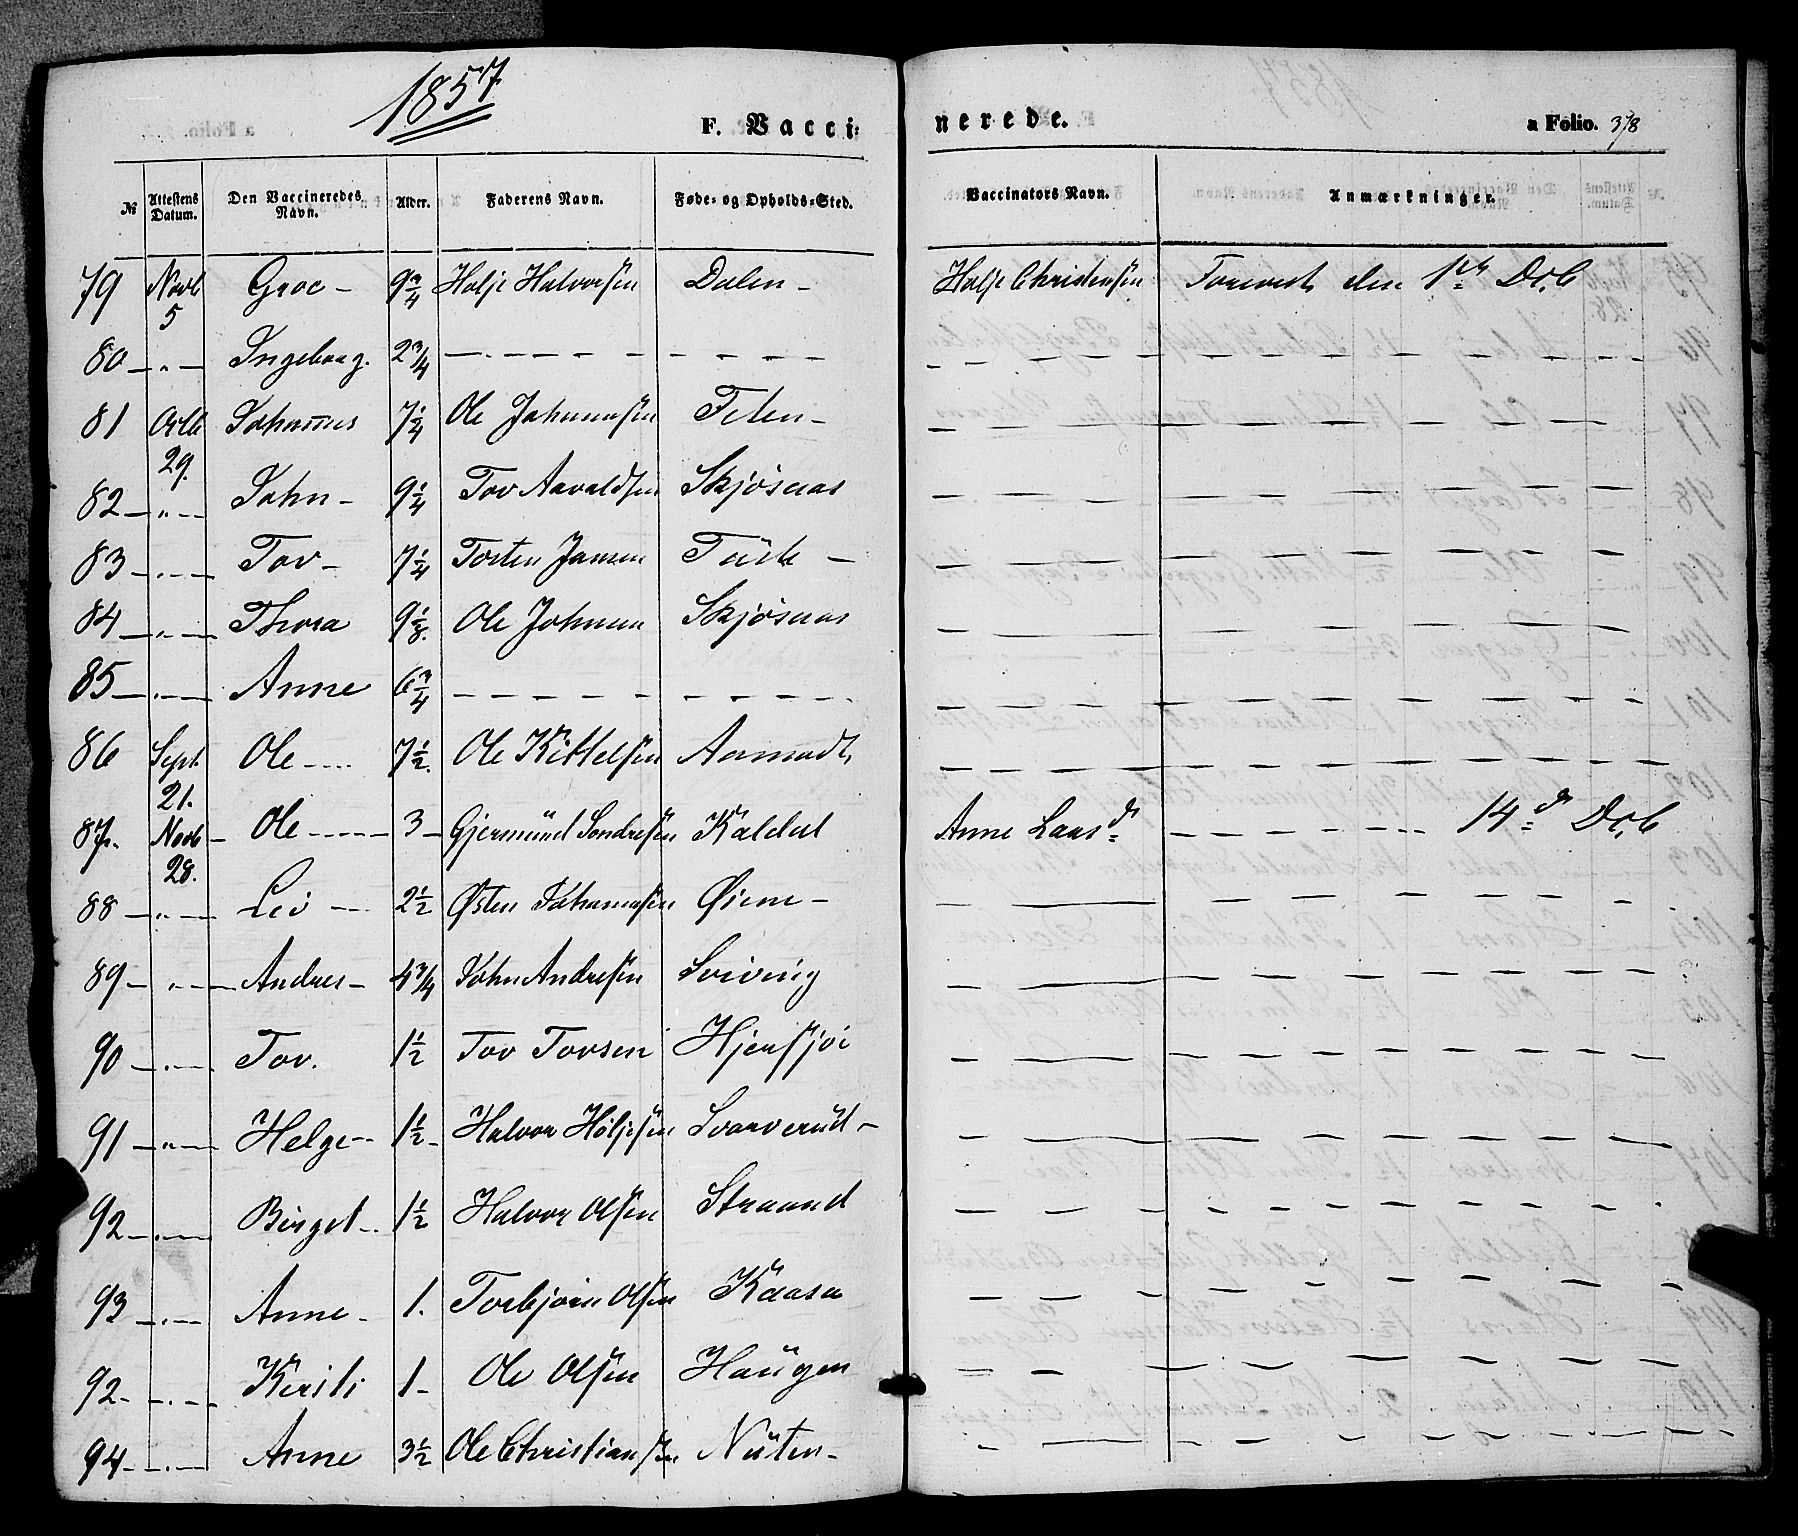 1857
F. Vacci-
nerede.
a Folio. 378
№ Attestens Datum. Den Vaccineredes Navn. Alder. Faderens Navn. Føde- og Opholds-Sted. Vaccinators Navn. Anmærkninger.
79 Novb 5 Groe - 9 3/4 Holje Halvorsen Dalen - Holje Christensen Forevist den 1ste Dcb
80 - " - Ingeborg. 2 3/4 - - - - - - - - - - -
81 Octb 29. Johannes 7 1/4 Ole Johannesen Teten - - - -
82 - " - John - 9 1/4 Tov Aavaldsen Skjøsaas - - -
83 - " - Tov - 7 1/4 Torsten Jansen - - - -
84 - " - Thora 9 1/8. Ole Johnsen Skjøsaas - - -
85 - " - Anne 6 3/4 - - - - - - - - -
86 Sept 21. Ole - 7 1/2. Ole Kittelsen Aamodt - - -
87. Novb 28. Ole - 3 - Gjermund Sondresen Kaldal Anne Laasd. - - - 14de Dcb
88 - " - Liv - 2 1/2 Østen Johannesen Øiene - - - -
89 - " - Andres - 4 3/4 John Andresen Sviving - - -
90 - " - Tov. 1 1/2 Tov Tovsen Hjersjøi - - -
91 - " - Helge - 1 1/2 - Halvor Höljesen Svarverud - - - -
92 - " - Birgit - 1 1/2 Halvor Olsen Straand - - -
93 - " - Anne - 1. Torbjørn Olsen Kaasa - - -
92 - " - Kirsti 1 - Ole Olsen Haugen - - -
94 - " - Anne 3 1/2 Ole Christiansen Nuten - - - -